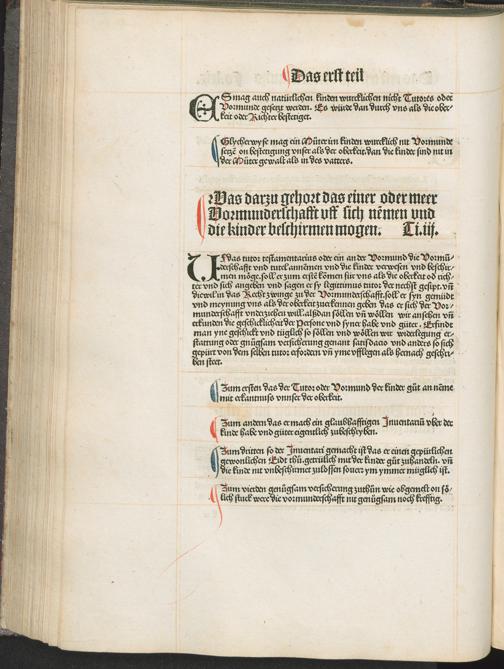 Das erst teil
ES mag auch natürlichen kinden wurcklichen nicht Tutores oder
Vormunde gesetzt werden. Es würde dan durch vns als die ober-
keit oder Richter bestetiget.
Glycherwyse mag ein Můter irn kinden wurcklich nit Vormunde
setzē on bestetigung vnser als der oberkeit. dan die kinde sind nit in
der Můter gewalt als in des vatters.
Was darzu gehort das einer oder meer
Vormunderschafft vff sich nēmen vnd
die kinder beschirmen mogen. Ti.iij.
Vff das tutor testamentarius oder ein ander Vormund die Vormū-
derschafft vnd tutel annēmen vnd die kinder verwesen vnd beschir-
men möge. soll er zum erstē komen für vns als die oberkeit od rich-
ter vnd sich angeben vnd sagen er sy legittimus tutor der nechst gesipt. vñ
die wil in das Recht zwinge zu der Vormunderschafft. soll er syn gemüdt
vnd meynung vns als der oberkeit zuerkennen geben das er sich der Vor-
munderschafft vnderziehen will. alßdan söllen vñ wöllen wir ansehen vñ
erkunden die geschicklicheit der Persone vnd syner habe vnd güter. Erfindt
man yne geschickt vnd tüglich so söllen vnd wöllen wir widerlegung er-
stattung oder gnůgsam versicherung genant satisdatio vnd anders so sich
gepürt von dem selben tutor erfordern vñ yme vfflegen als hernach geschri-
ben steet.
Zum ersten das der Tutor oder Vormund der kinder gůt an nēme
mit erkantniß vnnser der oberkeit.
Zum andern das er mach ein glaubhafftigen Inuentariū vber der
kinde habe vnd güter eigentlich zubeschryben.
Zum dritten so der Inuentari gemacht ist das er einen gepürlichen
gewonlichen Eidt thü. getrülich mit der kinder gůt zuhandeln. vñ
die kinde nit vnbeschirmet zulossen souerr ym ymmer müglich ist.
Zum vierden genůgsam versicherung zuthůn wie obgemelt on sö-
lich stuck were die vormunderschafft nit genůgsam noch krefftig.